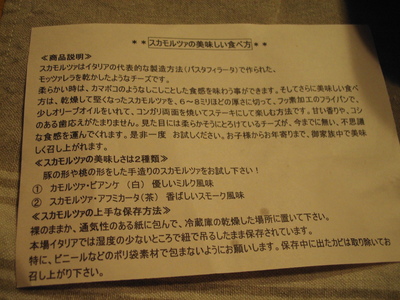 ＊＊スカモルツァの美味しい食べ方＊＊
≪商品説明≫
スカモルツァはイタリアの代表的な製造方法（パスタフィラータ）で作られた。
モッツァレラを乾かしたようなチーズです。
柔らかい時は、カマボコのようなしこしことした食感を味わう事ができます。そしてさらに美味しい食べ
方は、乾燥して堅くなったスカモルツァを、6～8ミリほどの厚さに切って、フッ素加工のフライパンで、
少しオリーブオイルをいれて、コンガリ両面を焼いてステーキにして楽しむ方法です。甘い香りや、コシ
のある歯応えがたまりません。見た目には柔らかそうにとろけているチーズが、今までに無い、不思議
な食感を運んでくれます。是非一度　お試しください。お子様からお年寄りまで、御家族中で美味
しく召し上がれます。
≪スカモルツァの美味しさは2種類≫
豚の形や桃の形をした手造りのスカモルツァをお試し下さい！
① カモルツァ・ビアンケ （白） 優しいミルク風味
② スカモルツァ・アフミカータ（茶） 香ばしいスモーク風味
≪スカモルツァの上手な保存方法≫
裸のままか、通気性のある紙に包んで、冷蔵庫の乾燥した場所に置いて下さい。
本場イタリアでは湿度の少ないところで紐で吊るしたまま保存されています。
特に、ビニールなどのポリ袋素材で包まないようにお願いします。保存中に出たカビは取り除いてお
召し上がり下さい。